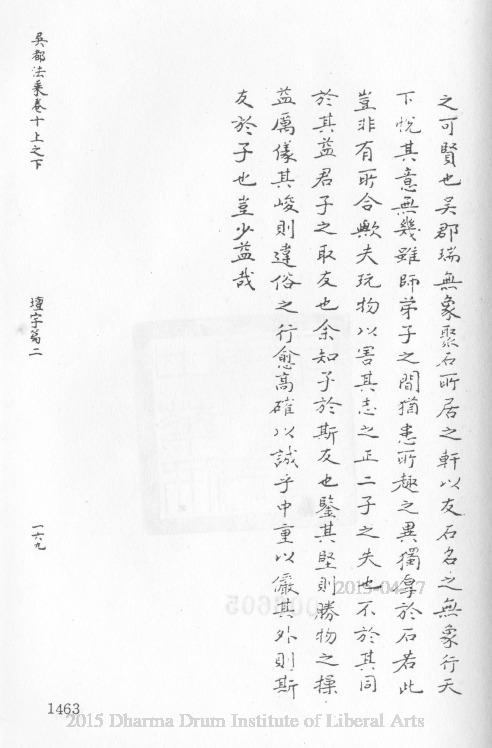 之可賢也吳郡瑞無象聚石所居之軒以友石名之無象行天
下悅其意無幾雖師弟子之間猶患所趣之異獨拿於石若此
豈非有所合歟夫玩物以害其志之正二子之失也不於其同
於其益君子之取友也余知子於斯友也鑒其堅則勝物之操
益厲儀其峻則違俗之行愈高確以誠乎中重以儼其外則斯
友於子也豈少益哉
吳都法乘卷十上之下
壇宇篇二
一六九
1463
2015-04-27
2015 Dharma Drum Institute of Liberal Arts